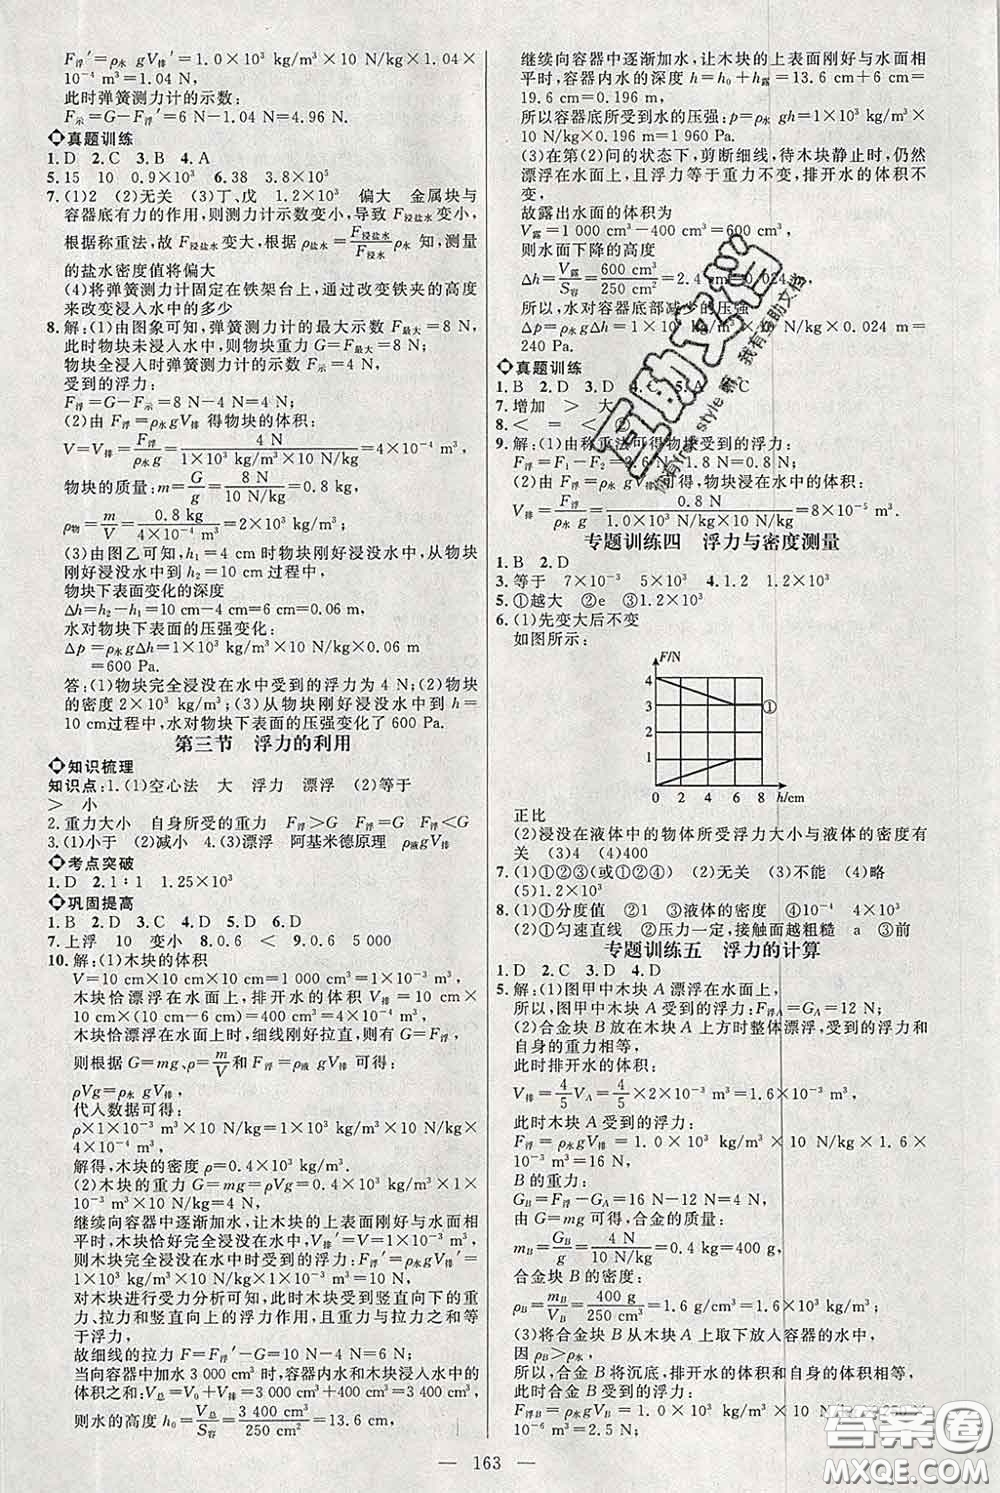 F浮′=ρ水 gV排′=1.0×10³ kg/m³×10 N/kg×1.04×
10⁻⁴ m³=1.04 N,
此时弹簧测力计的示数:
F示=G-F浮′=6 N-1.04 N=4.96 N.
真题训练
1.D 2.C 3.B 4.A
5.15 10 0.9×10³ 6.38 3.8×10⁵
7.(1)2 (2)无关 (3)丁、戊 1.2×10³ 偏大 金属块与
容器底有力的作用,则测力计示数变小,导致 F浸盐水变小,
根据称重法,故 F浸盐水变大,根据 ρ盐水=F浸盐水/F浸水 ρ水 知,测量
的盐水密度值将偏大
(4)将弹簧测力计固定在铁架台上,通过改变铁夹的高度
来改变浸入水中的多少
8.解:(1)由图象可知,弹簧测力计的最大示数 F最大=8 N,
此时物块未浸入水中,则物块重力 G=F最大=8 N;
物块全浸入时弹簧测力计的示数 F示=4 N,
受到的浮力:
F浮=G-F示=8 N-4 N=4 N;
(2)由 F浮=ρ水gV排得物块的体积:
V=V排=F浮/ρ水g=4 N/1×10³ kg/m³×10 N/kg=4×10⁻⁴ m³,
物块的质量:m=G/g=8 N/10 N/kg=0.8 kg,
ρ物=m/V=0.8 kg/4×10⁻⁴ m³=2×10³ kg/m³;
(3)由图乙可知,h₁=4 cm时物块刚好浸没水中,从物块
刚好浸没水中到 h₂=10 cm过程中,
物块下表面变化的深度
Δh=h₂-h₁=10 cm-4 cm=6 cm=0.06 m,
水对物块下表面的压强变化:
Δp=ρ水gΔh=1×10³ kg/m³×10 N/kg×0.06 m
=600 Pa.
答:(1)物块完全浸没在水中受到的浮力为 4 N;(2)物块
的密度 2×10³ kg/m³;(3)从物块刚好浸没水中到 h=
10 cm过程中,水对物块下表面的压强变化了 600 Pa.
第三节 浮力的利用
知识梳理
知识点:1.(1)空心法 大 浮力 漂浮 (2)等于
> 小
2.重力大小 自身所受的重力 F浮>G F浮=G F浮<G
3.(1)小于 (2)减小 4.(3)漂浮 阿基米德原理 ρ液gV排
考点突破
1.D 2.1∶1 1.25×10³
巩固提高
1.B 2.D 3.C 4.D 5.D 6.D
7.上浮 10 变小 8.0.6 < 9.0.6 5 000
10.解:(1)木块的体积
V=10 cm×10 cm×10 cm=1 000 cm³=1×10⁻³ m³,
木块恰漂浮在水面上,排开水的体积 V排=10 cm×
10 cm×(10 cm-6 cm)=400 cm³=4×10⁻⁴ m³,
木块恰漂浮在水面上时,细线刚好拉直,则有 G=F浮,
则根据 G=mg、ρ=m/V和 F浮=ρ液 gV排可得:
ρVg=ρ水 gV排,
代入数据可得:
ρ×1×10⁻³ m³×10 N/kg=1×10³ kg/m³×10 N/kg×
4×10⁻⁴ m³,
解得,木块的密度 ρ=0.4×10³ kg/m³.
(2)木块的重力 G=mg=ρVg=0.4×10³ kg/m³×1×
10⁻³ m³×10 N/kg=4 N,
继续向容器中逐渐加水,让木块的上表面刚好与水面相
平时,木块恰好完全浸没在水中,V排′=V=1×10⁻³ m³,
则木块完全浸没在水中时受到的浮力:F浮′=ρ水gV排′=
1×10³ kg/m³×10 N/kg×1×10⁻³ m³=10 N,
对木块进行受力分析可知,此时木块受到竖直向下的重
力、拉力和竖直向上的浮力作用,且重力与拉力之和等
于浮力,
故细线的拉力 F=F浮′-G=10 N-4 N=6 N,
当向容器中加水 3 000 cm³时,容器内水和木块浸入水中的
体积之和:V总=V₀+V排=3 000 cm³+400 cm³=3 400 cm³,
则水的高度 h₀=V总/S容=3 400 cm³/250 cm²=13.6 cm,
继续向容器中逐渐加水,让木块的上表面刚好与水面相
平时,容器内水的深度 h=h₀+h露=13.6 cm+6 cm=
19.6 cm=0.196 m,
所以容器底所受到水的压强:p=ρ水 gh=1×10³ kg/m³×
10 N/kg×0.196 m=1 960 Pa.
(3)在第(2)问的状态下,剪断细线,待木块静止时,仍然
漂浮在水面上,且浮力等于重力不变,排开水的体积不
变,
故露出水面的体积为
V露=1 000 cm³-400 cm³=600 cm³,
则水面下降的高度
Δh=V露/S容=600 cm³/250 cm²=2.4 cm=0.024 m,
所以,水对容器底部减少的压强
Δp=ρ水gΔh=1×10³ kg/m³×10 N/kg×0.024 m=
240 Pa.
真题训练
1.B 2.D 3.D 4.C 5.A C
7.增加 > 大
8.< = <
9.解:(1)由称重法可得物块受到的浮力:
F浮=F₁-F₂=2.6 N-1.8 N=0.8 N;
(2)由 F浮=ρ水gV排可得,物块浸在水中的体积:
V排=F浮/ρ水 g=0.8 N/1.0×10³ kg/m³×10 N/kg=8×10⁻⁵ m³.
专题训练四 浮力与密度测量
1.B 2.D
3.等于 7×10⁻³ 5×10³ 4.1.2 1.2×10³
5.①越大 ②e ③1.2×10³
6.(1)先变大后不变
如图所示:
F/N
4
3 ①
2
1
0 2 4 6 8 h/cm
正比
(2)浸没在液体中的物体所受浮力大小与液体的密度有
关 (3)4 (4)400
7.(1)①②③(或①②④) (2)无关 (3)不能 (4)略
(5)1.2×10³
8.(1)①分度值 ②1 ③液体的密度 ④10⁻⁴ 0.9×10³
(2)①匀速直线 ②压力一定,接触面越粗糙 a ③前
专题训练五 浮力的计算
1.D 2.C 3.D 4.D
5.解:(1)图甲中木块 A 漂浮在水面上,
所以,图甲中木块 A 受到的浮力:F浮A=GA=12 N;
(2)合金块 B 放在木块 A 上方时整体漂浮,受到的浮力和
自身的重力相等,
此时排开水的体积:
V排=4/5VA=4/5×2×10⁻³ m³=1.6×10⁻³ m³,
此时木块 A 受到的浮力:
F浮=ρ水gV排=1.0×10³ kg/m³×10 N/kg×1.6×
10⁻³ m³=16 N,
B 的重力:
GB=F浮-GA=16 N-12 N=4 N,
由 G=mg 可得,合金的质量:
mB=GB/g=4 N/10 N/kg=0.4 kg=400 g,
合金块 B 的密度:
ρB=mB/V=400 g/250 cm³=1.6 g/cm³=1.6×10³ kg/m³;
(3)将合金块 B 从木块 A 上取下放入容器的水中,
因 ρB>ρ水,
所以,合金块 B 将沉底,排开水的体积和自身的体积相等,
此时合金 B 受到的浮力:
F浮B=ρ水 gVB=1.0×10³ kg/m³×10 N/kg×250×
10⁻⁶ m³=2.5 N;
— 163 —
互助文档
你有freestyle嘛,我有互助文档
答案圈
MXQE.COM